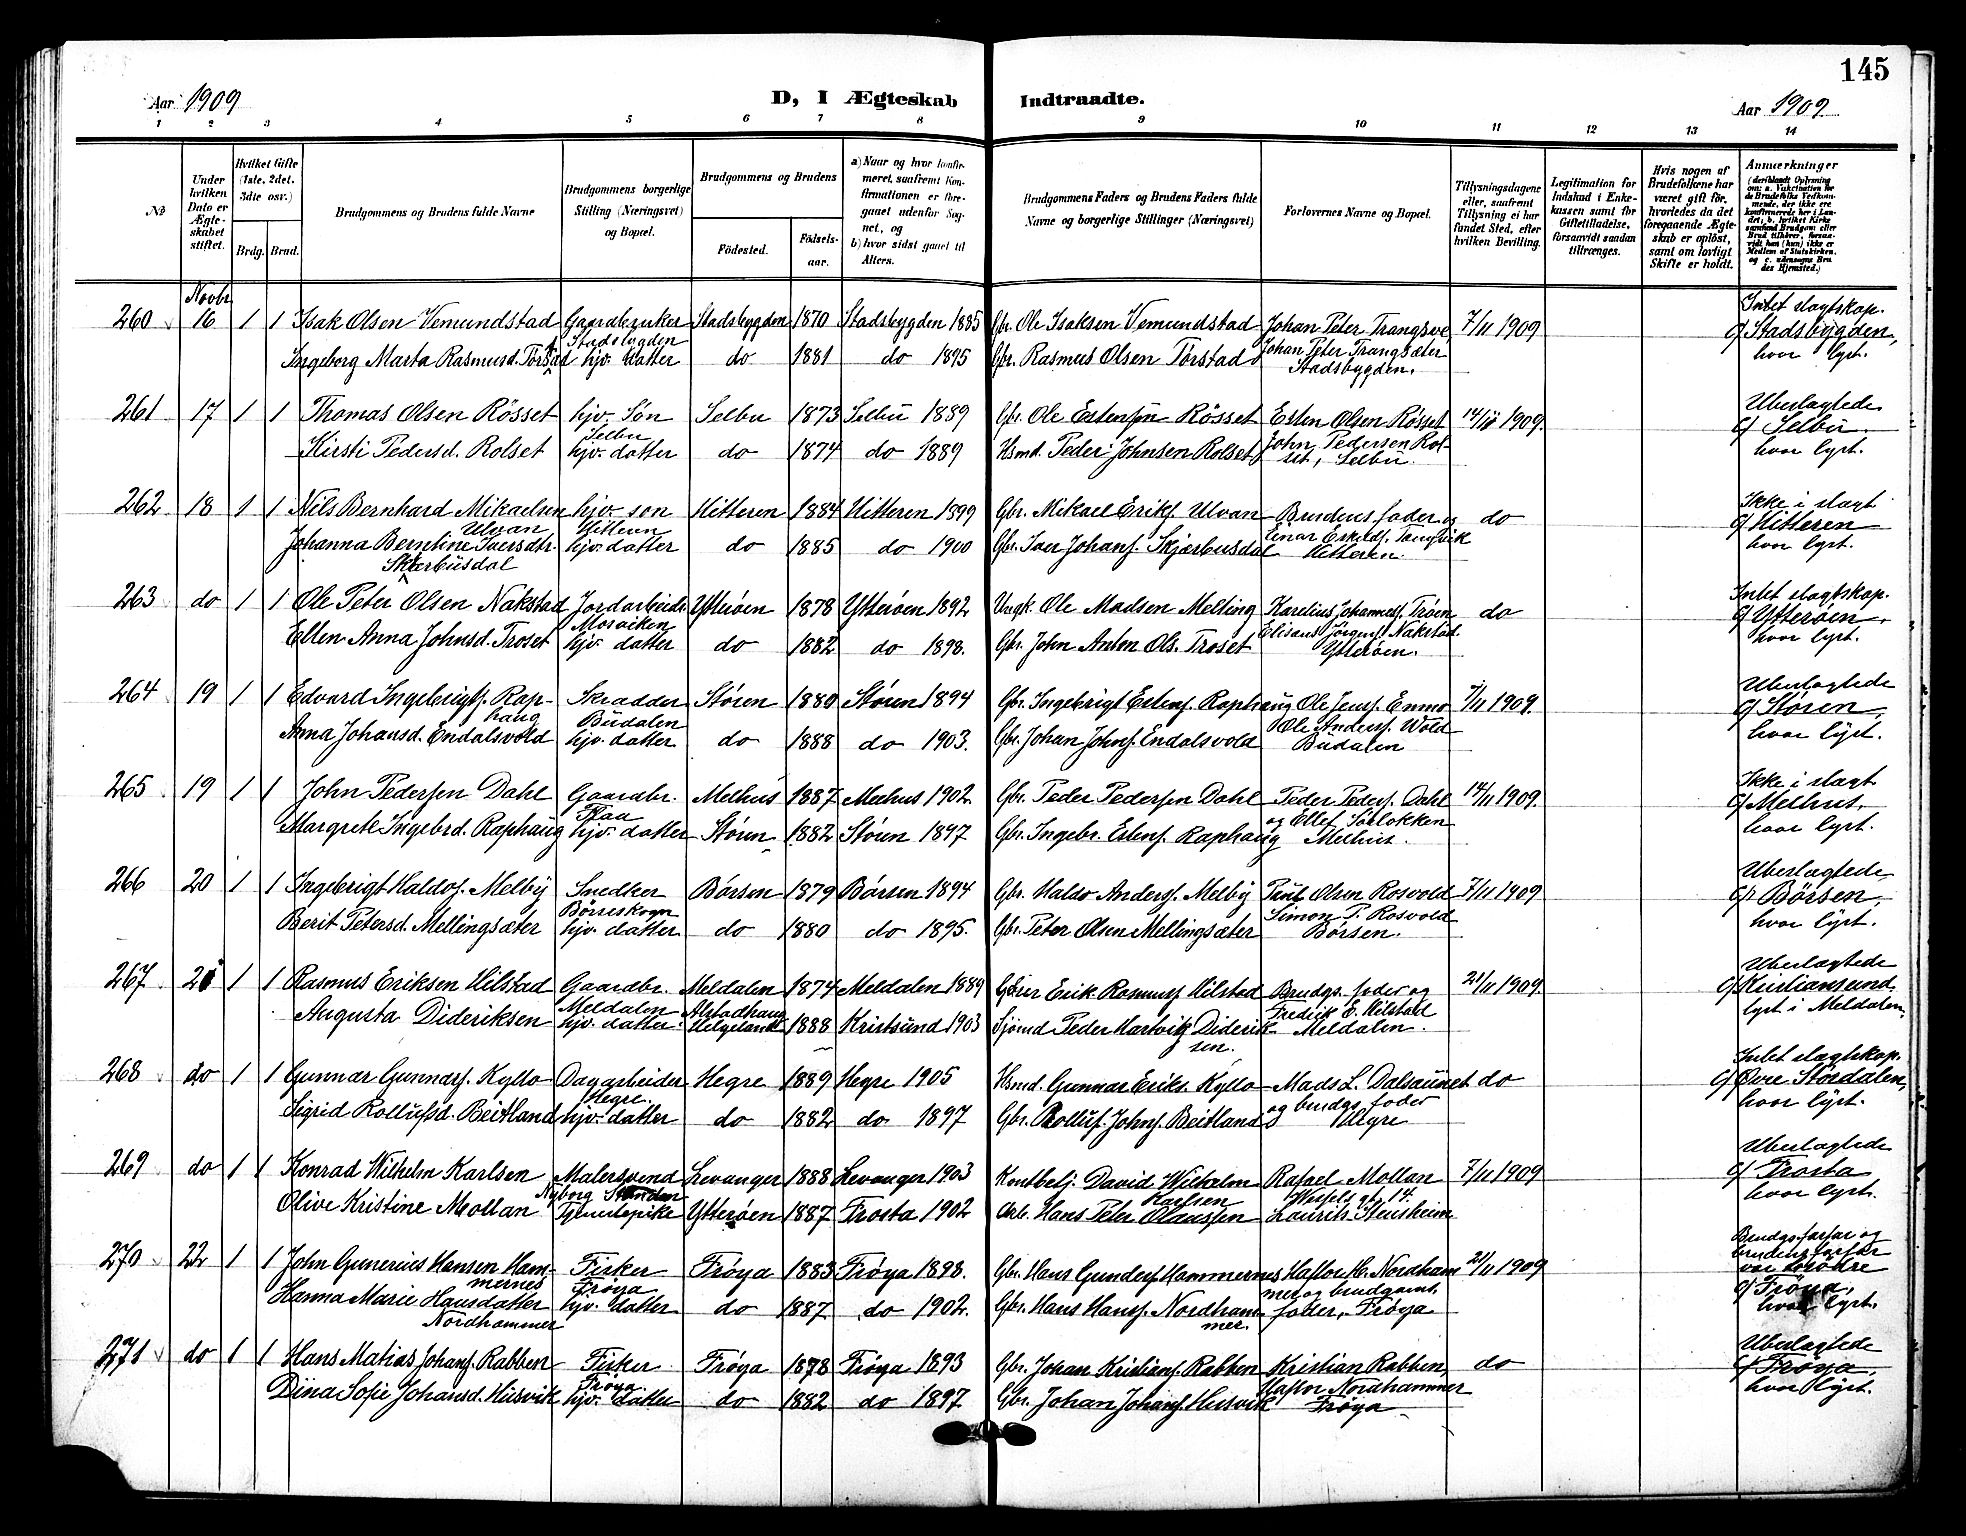 145
Aar 1909
D, I Ægteskab Indtraadte.
Aar 1909
1 2 3 4 5 6 7 8 9 10 11 12 13 14
No
Under hvilken Dato er Ægteskabet stiftet.
Hvilket Gifte (1ste, 2det, 3die osv.)
Brdg. Brud.
Brudgommens og Brudens fulde Navne
Brudgommens borgerlige Stilling (Næringsvei) og Bopæl.
Brudgommens og Brudens
Fødested. Fødselsaar.
a) Naar og hvor konfirmeret, saafremt Konfirmationen er foregaaet udenfor Sognet, og
b) hvor sidst gaaet til Alters.
Brudgommens Faders og Brudens Faders fulde Navne og borgerlige Stillinger (Næringsvei)
Forlovernes Navne og Bopæl.
Tillysningsdagene eller, saafremt Tillysning ei har fundet Sted, efter hvilken Bevilling.
Legitimation for Indskud i Enkekassen samt for Giftetilladelse, forsaavidt saadan tiltrænges.
Hvis nogen af Brudefolkene har været gift før, hvorledes da det foregaaende Ægteskab er opløst, samt om lovligt Skifte er holdt.
Anmærkninger
Novbr
260 16 1 1 Isak Olsen Vemundstad Gaardbruker Stadsbygden 1870 Stadsbygden 1885 Gbr. Ole Isaksen Vemundstad Johan Peter Trangsve 7/11 1909 Intet slagtskap.
Stadsbygden
Ingeborg Marta Rasmusd. Torstad hjv. datter do 1881 do 1895 Gbr. Rasmus Olsen Torstad Johan Peter Trangsæter Stadsbygden. g/ Stadsbygden, hvor lyst.
261 17 1 1 Thomas Olsen Rösset hjv. Søn Selbu 1873 Selbu 1889 Gbr. Ole Estensen Rösset Esten Olsen Røsset 14/11 1909. Ubeslagtede
Selbu
Kirsti Pedersd. Rolset hjv. datter do 1874 do 1889 Hsmd. Peder Johnsen Rolset John Pedersen Rolset, Selbu. g/ Selbu hvor lyst.
262 18 1 1 Nils Bernhard Mikaelsen Ulvan hjv. søn Hitteren 1884 Hitteren 1899 Gbr. Mikael Eriks. Ulvan Brudens fader og do Ikke i slagt
Hitteren
Johanna Berntine Iversdtr. Skjærbusdal hjv. datter do 1885 do 1900 Gbr. Iver Johans. Skjærbusdal Einar Eskilds. Tangvik Hitteren. g/ Hitteren hvor lyst.
263 do 1 1 Ole Peter Olsen Nakstad Jordarbeider Ytterøen 1878 Ytterøen 1892 Ungk. Ole Madsen Melting Karelius Johanness. Trøen do Intet slagtskap.
Mosviken
Ellen Anna Johnsd. Troset hjv. datter do 1882 do 1898. Gbr. John Anton Ols. Troset Elisæus Jörgens. Nakstad. Ytterøen. g/ Ytterøen. hvor lyst.
264 19 1 1 Edvard Ingebrigts. Raphaug Skrædder Støren 1880 Støren 1894 Gbr. Ingebrigt Estens. Raphaug Ole Jens. Enmo 7/11 1909. Ubeslagtede
Budalen
Anna Johansd. Endalsvold hjv. datter do 1888 do 1903. Gbr. Johan Johns. Endalsvold Ole Anders. Wold Budalen g/ Støren, hvor lyst.
265 19 1 1 John Pedersen Dahl Gaardbr. Melhus 1887 Melhus 1902 Gbr. Peder Pedersen Dahl Peder Peders. Dahl 14/11 1909. Ikke i slagt
Flaa
Margrete Ingebrd. Raphaug hjv. datter Støren 1882 Støren 1897 Gbr. Ingebr. Estens. Raphaug og Ellef Sørlokken Melhus. g/ Melhus. hvor lyst.
266 20 1 1 Ingebrigt Haldos. Melby Snedker Børsen 1879 Børsen 1894 Gbr. Haldo Anders. Melby Paul Olsen Rosvold 7/11 1909 Ubeslagtede
Børseskogn
Berit Petersd. Mellingsæter hjv. datter do 1880 do 1895. Gbr. Peter Olsen Mellingsæter Simon P. Rosvold Børsen. g/ Børsen, hvor lyst.
267 21 1 1 Rasmus Eriksen Hilstad Gaardbr. Meldalen 1874 Meldalen 1889 Gbr. Erik Rasmuss. Hilstad Brudgs. fader og 21/11 1909. Ubeslægtede
Meldalen
Augusta Dideriksen hjv. datter Alstadhaug Helgeland 1888 Kristsund 1903 Sjömd Peder Hartvik Dideriksen. Fredrik E. Hilstad Meldalen. g/ Kristiansund, lyst i Meldalen.
268 do 1 1 Gunnar Gunnars. Kyllo Dagarbeider Hegre 1889 Hegre 1905 Hsmd. Gunnar Eriks. Kyllo Mads L. Dalsaunet do Intet slægtskap.
Hegre.
Sigrid Rollufsd. Beitland hjv. datter do 1882 do 1897 Gbr. Rolluf. Johns. Beitland og brudgs. fader Hegre g/ Øvre Stördalen, hvor lyst.
269 do 1 1 Konrad Wilhelm Karlsen Malersvend Levanger 1888 Levanger 1903 Kontbetj. David Wilhelm Karlsen Rafael Mollan 7/11 1909 Ubeslagtede
Nyborg Stranden
Olive Kristine Mollan Tjenestepike Ytterøen 1887 Frosta 1902 Arb. Hans Peter Olaussen Wessels gt. 14. Laurits Steinsheim g/ Frosta hvor lyst.
270 22 1 1 John Gunerius Hansen Hammernes Fisker Frøya 1883 Frøya 1898. Gbr. Hans Gunders. Hammernes Haftor H. Nordhammer 21/11 1909 Brudgs. farfar og brudens farfar var brödre
Frøya
Hanna Marie Hansdatter Nordhammer hjv. datter do 1887 do 1902. Gbr. Hans Hans. Nordhammer. og brudgomt. fader, Frøya g/ Frøya, hvor lyst.
271 do 1 1 Hans Matias Johans. Rabben Fisker Frøya 1878 Frøya 1893 Gbr. Johan Kristians. Rabben Kristian Rabben, do Ubeslagtede
Frøya
Dina Sofie Johansd. Husvik hjv. datter do 1882 do 1897 Gbr. Johan Johans. Husvik Haftor Nordhammer Frøya g/ Frøya, hvor lyst.